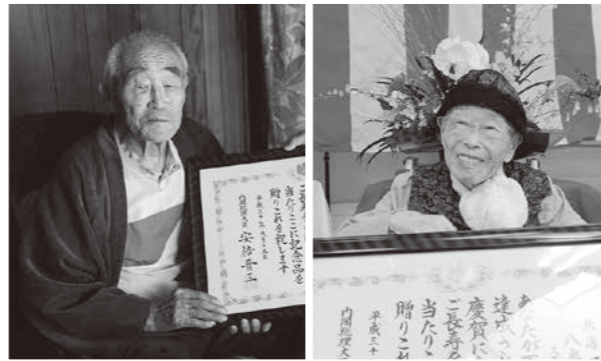 当たりここに記念品を
贈りこれを祝します
平成二十
内閣総理大臣 安倍晋三
八
あなたが
達成さ
慶賀に
ご長寿
当たりこ
贈りこれ
平成三十
内閣総理大